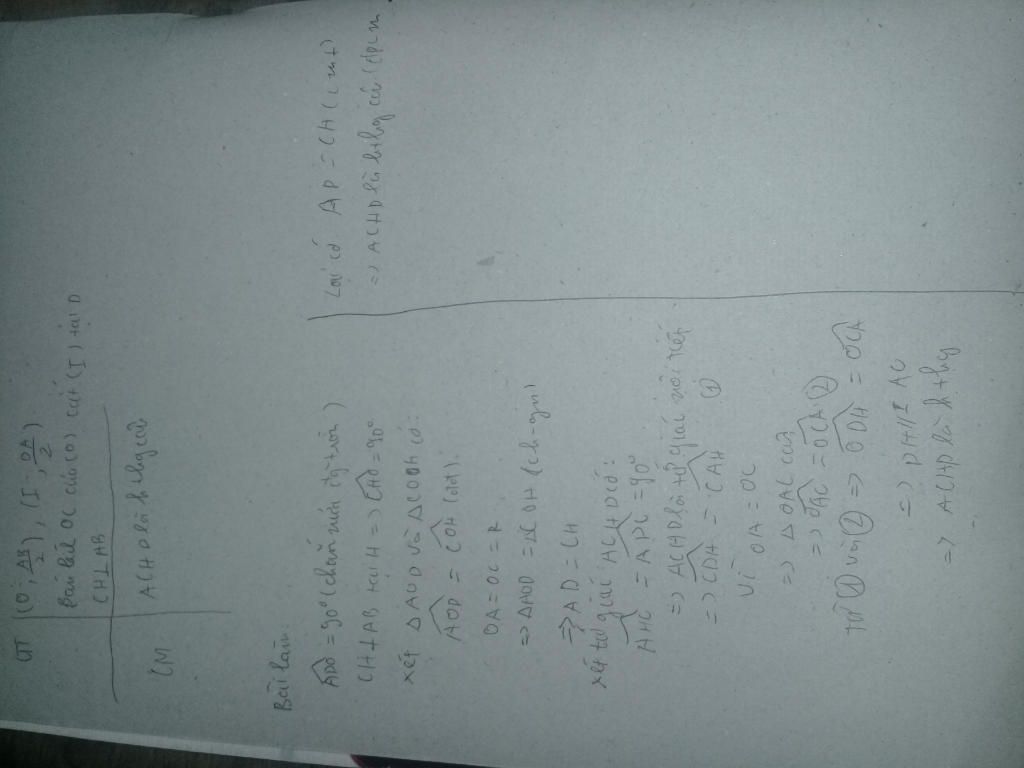 GT (O; AB/2), (I; OA/2)
Bán kính OC của (O) cắt (I) tại D
CH⊥AB
CM ACHD là hthg cân
Bài làm:
ADO = 90° (chắn nửa đg tròn)
CH⊥AB tại H => CHO = 90°
Xét Δ AOD và Δ COH có:
AOD = COH (đđ)
OA = OC = R
=> ΔAOD = ΔCOH (ch-gn)
=> AD = CH
Xét tứ giác ACHD có:
AHC = ADC = 90°
=> ACHD là tứ giác nội tiếp
=> CDH = CAH (1)
Vì OA = OC
=> Δ OAC cân
=> OAC = OCA (2)
Từ (1) và (2) => ODH = OCA
=> DH // AC
=> ACHD là hthg
Lại có AD = CH (cmt)
=> ACHD là hthg cân (đpcm